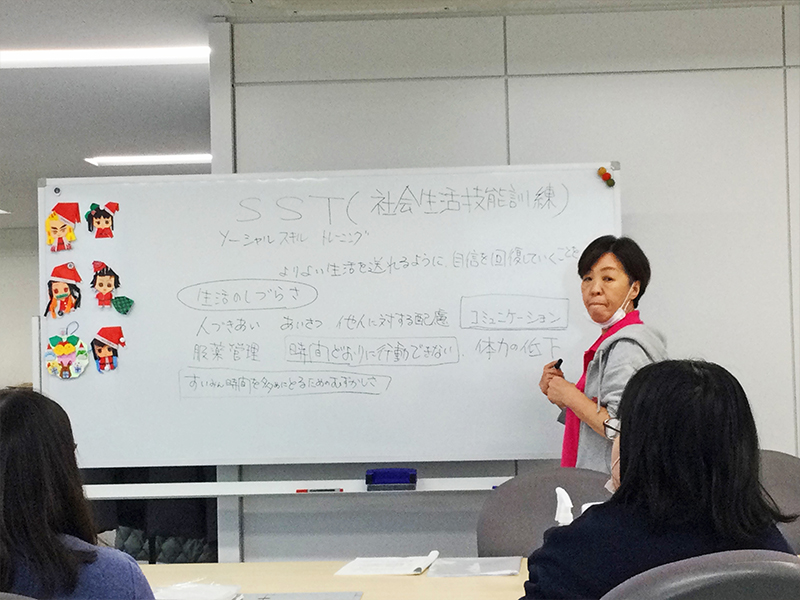 SST(社会生活技能訓練)
ソーシャル スキル トレーニング
よりよい生活を送れるように、自信を回復していくことを
生活のしづらさ
人づきあい あいさつ 他人に対する配慮 コミュニケーション
服装管理 時間どおりに行動できない. 体力の低下
すいみん時間を多めにとるためのむずかしさ